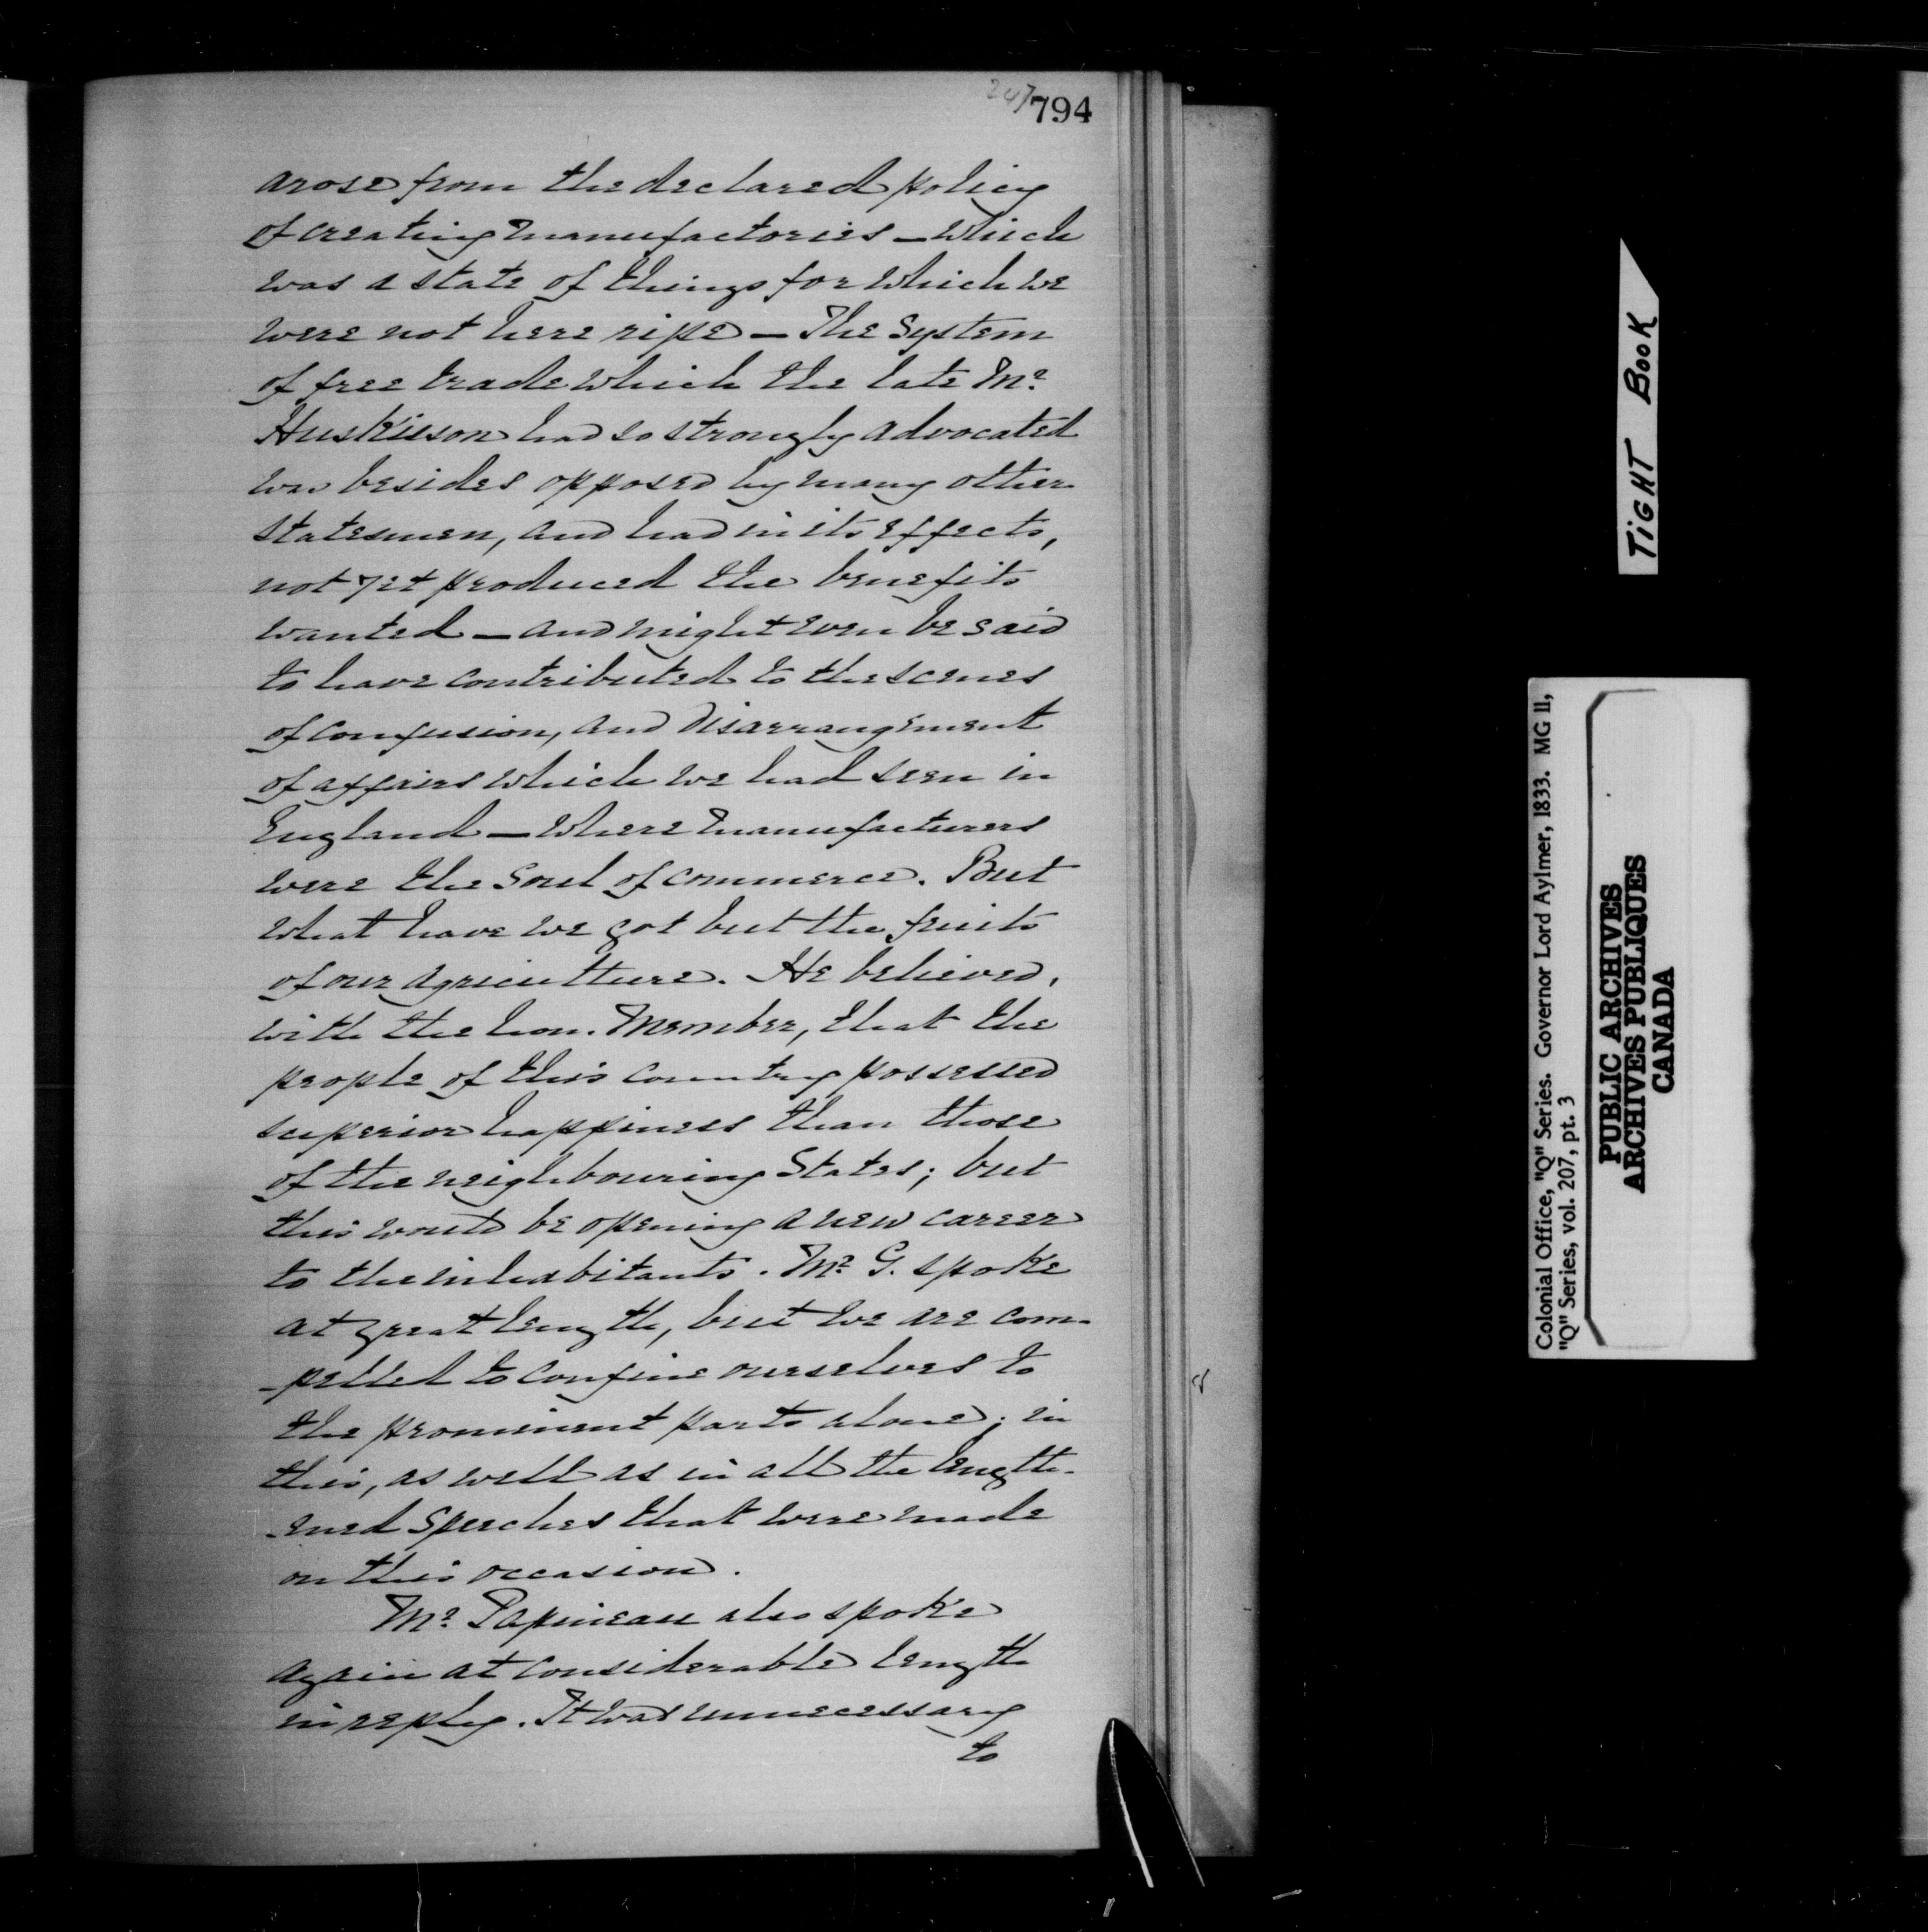 247 794
arose from the declared policy
of creating manufactories — which
was a state of things for which we
were not here ripe — The system
of free trade which the late Mr.
Huskisson had so strongly advocated
was besides opposed by many other
statesmen, and had in its effects,
not yet produced the benefits
wanted — and might even be said
to have contributed to the scenes
of confusion, and disarrangement
of affairs which we had seen in
England — where manufacturers
were the soul of commerce. But
what have we got but the fruits
of our agriculture. He believed,
with the hon. Member, that the
people of this country possessed
superior happiness than those
of the neighbouring States; but
this would be opening a new career
to the inhabitants. Mr. G. spoke
at great length, but we are com-
-pelled to confine ourselves to
the prominent parts alone; in
this, as well as in all the length-
-ened speeches that were made
on this occasion.
Mr. Papineau also spoke
again at considerable length
in reply. It was unnecessary
to
TIGHT BOOK
Colonial Office, "Q" Series. Governor Lord Aylmer, 1833. MG 11,
"Q" Series, vol. 207, pt. 3
PUBLIC ARCHIVES
ARCHIVES PUBLIQUES
CANADA